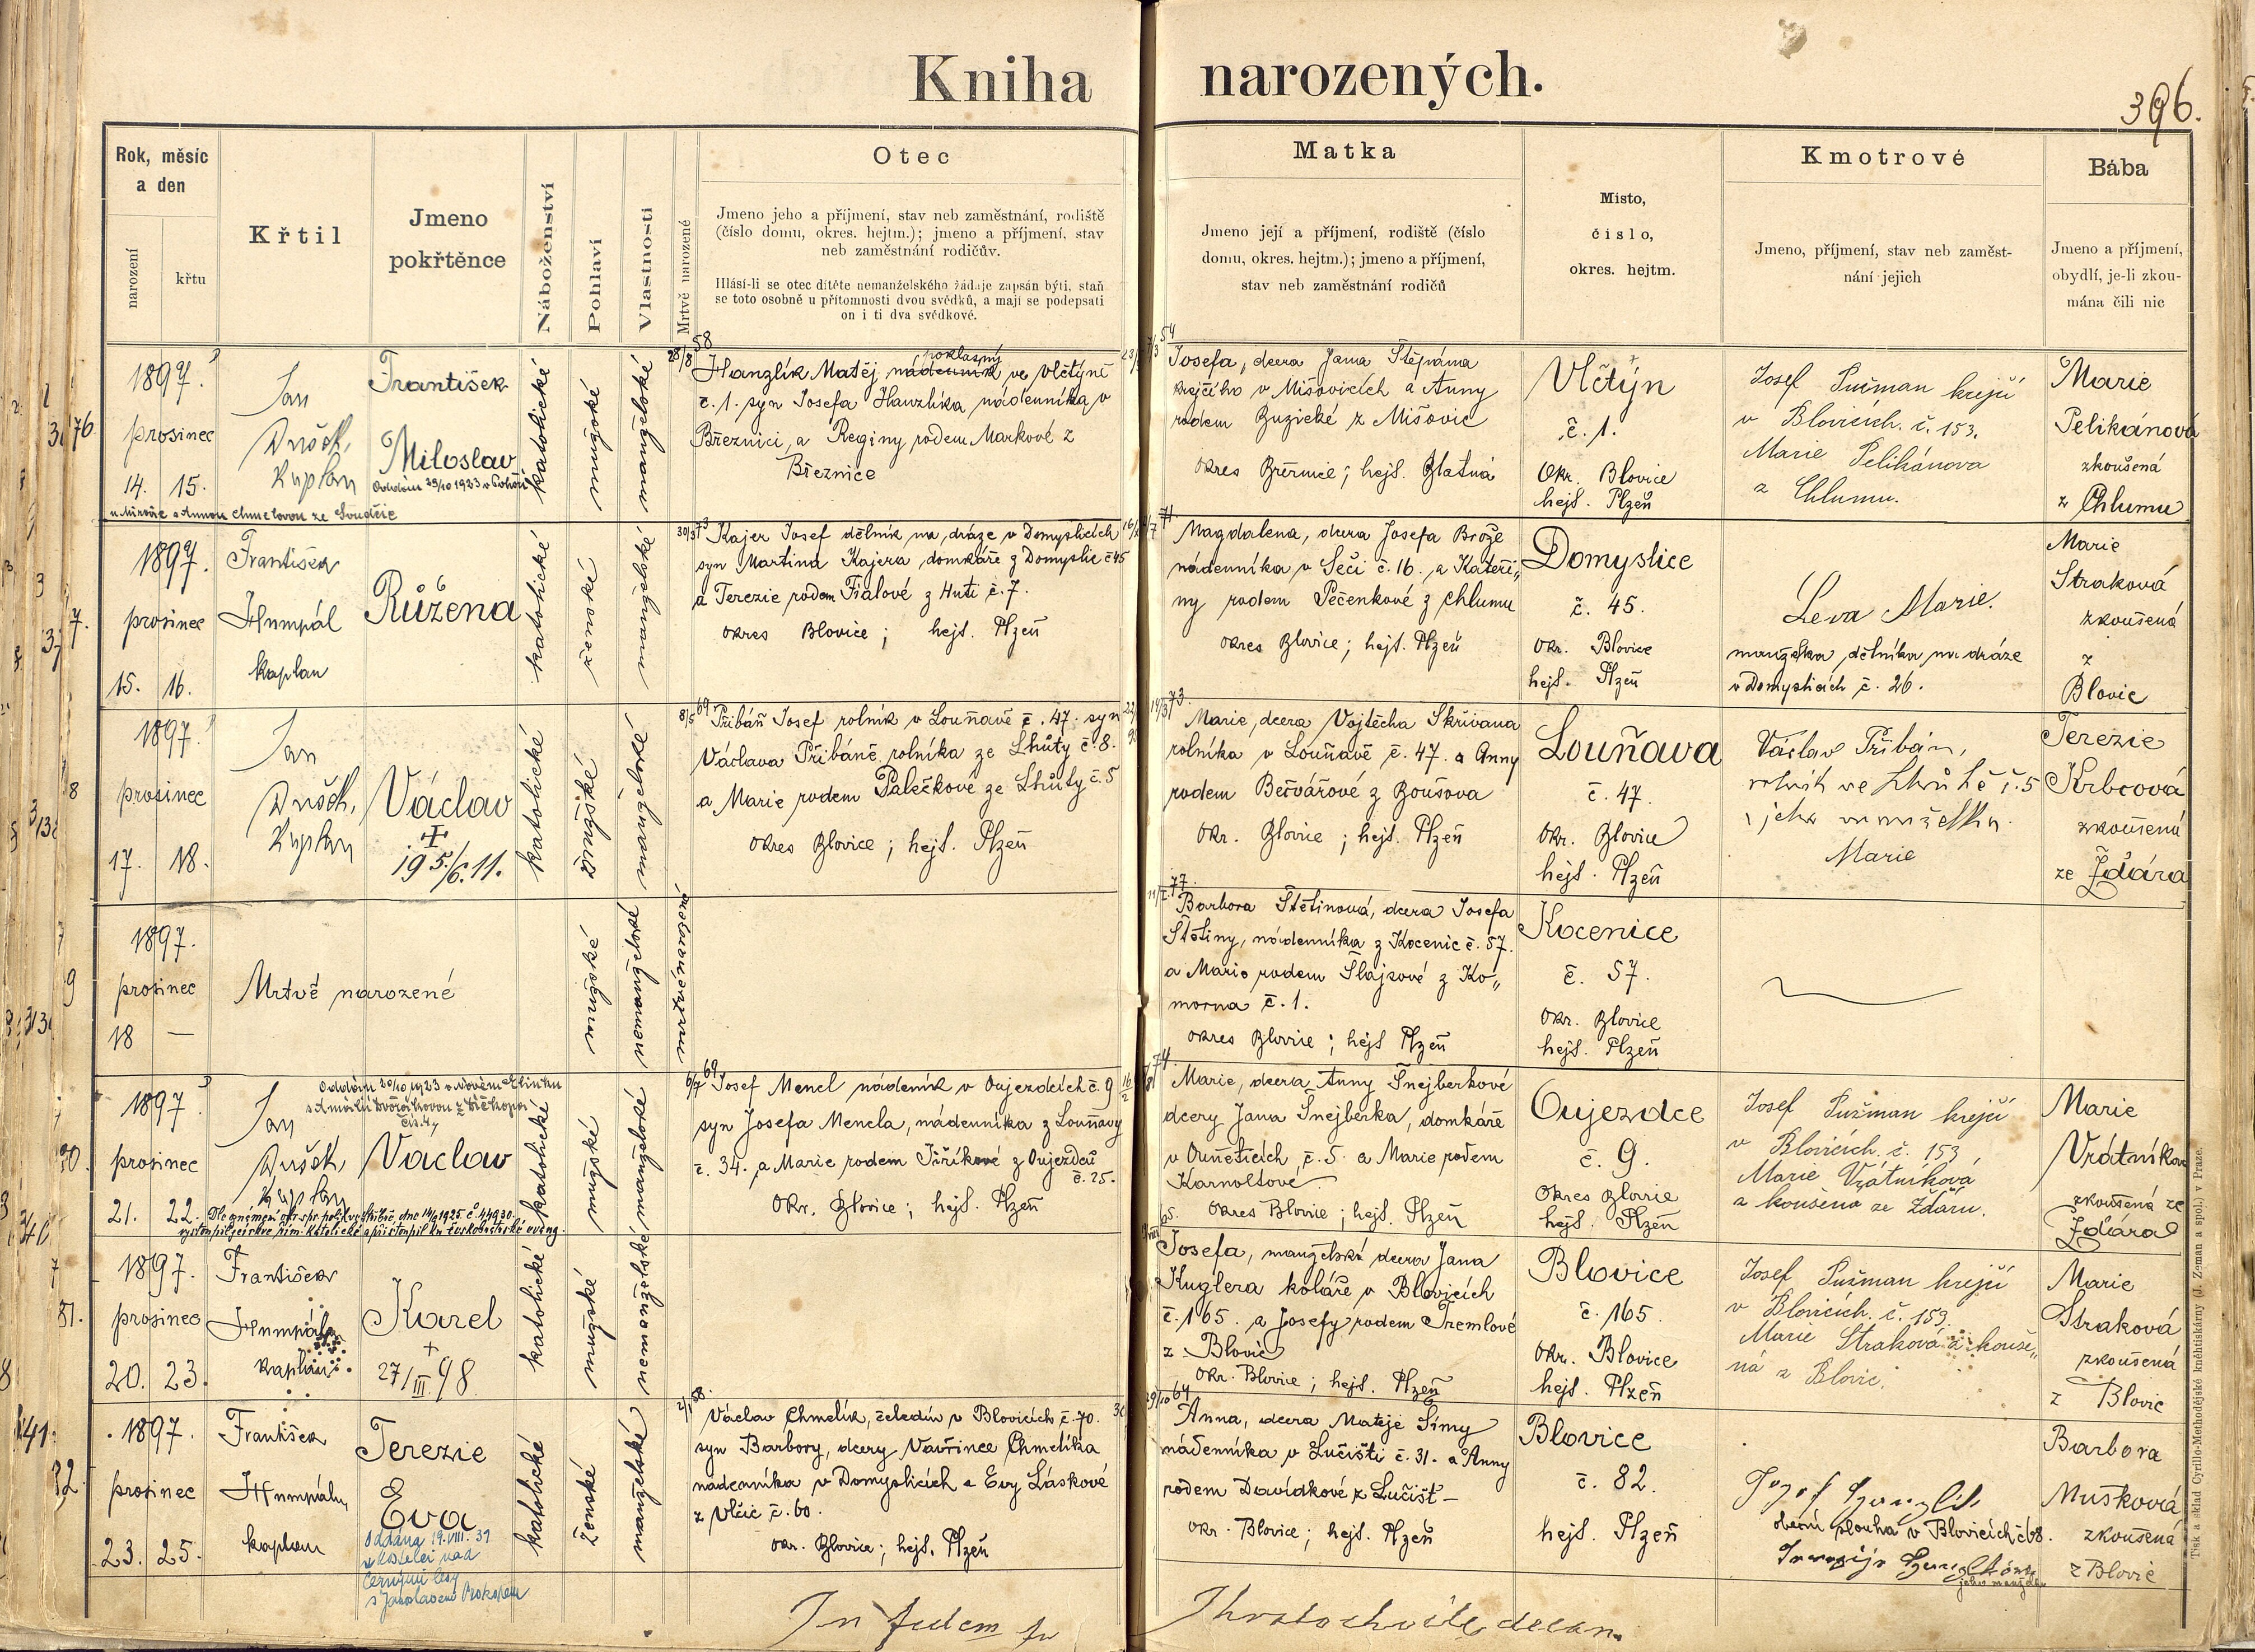 Kniha narozených.
396.
Rok, měsíc
a den
narození
křtu
Křtil
Jmeno
pokřtěnce
Náboženství
Pohlaví
Vlastnosti
Mrtvě narozené
Otec
Jmeno jeho a příjmení, stav neb zaměstnání, rodiště
(číslo domu, okres. hejtm.); jmeno a příjmení, stav
neb zaměstnání rodičův.
Hlásí-li se otec dítěte nemanželského žádaje zapsán býti, staň
se toto osobně u přítomnosti dvou svědků, a mají se podepsati
on i ti dva svědkové.
Matka
Jmeno její a příjmení, rodiště (číslo
domu, okres. hejtm.); jmeno a příjmení,
stav neb zaměstnání rodičů
Místo,
číslo,
okres. hejtm.
Kmotrové
Jmeno, příjmení, stav neb zaměst-
nání jejich
Bába
Jmeno a příjmení,
obydlí, je-li zkou-
mána čili nic
76
1897.
prosinec
14. 15.
Jan
Dušek,
Kaplan
František
Miloslav
Oddán 29/10 1923
katolické
mužské
manželské
28/8 58
Hanzlík Matěj nádenník ve Vlčtýně
č. 1. syn Josefa Hanzlíka nádenníka v
Březnici, a Reginy rodem Markové z
Březnice
54
Josefa, dcera Jana Štěpána
krejčího v Mišovicích a Anny
rodem Buzické z Mišovic
okres Březnice; hejt. Blatná
Vlčtýn
č. 1.
Okr. Blovice
hejt. Plzeň
Josef Sušman krejčí
v Blovicích č. 153.
Marie Pelikánova
z Chlumu.
Marie
Pelikánová
zkoušená
z Chlumu
7.
1897.
prosinec
15. 16.
František
Humpál
kaplan
Růžena
katolické
ženské
manželské
Kajer Josef dělník na dráze v Domyslicích
syn Martina Kajera domkáře z Domyslic č 45
a Terezie rodem Fialové z Huti č. 7.
okres Blovice; hejt. Plzeň
Magdalena, dcera Josefa Brože
nádenníka v Seči č. 16. a Kateři„
ny rodem Pečenkové z Chlumu
okres Blovice; hejt. Plzeň
Domyslice
č. 45.
okr. Blovice
hejt. Plzeň
Leva Marie.
manželka dělníka na dráze
v Domyslicích č. 26.
Marie
Straková
zkoušená
z
Blovic
8
1897.
prosinec
17. 18.
Jan
Dušek,
Kaplan
Václav
katolické
mužské
manželské
8/5 69
Přibáň Josef rolník v Louňavě č. 47. syn
Václava Přibáně rolníka ze Lhůty č. 8.
a Marie rodem Palečkové ze Lhůty č. 5
okres Blovice; hejt. Plzeň
73.
Marie, dcera Vojtěcha Skřivana
rolníka v Louňavě č. 47. a Anny
rodem Bečvářové z Zoušova
okr. Blovice; hejt. Plzeň
Louňava
č. 47.
okr. Blovice
hejt. Plzeň
Václav Přibáň,
rolník ve Lhůtě č. 5
i jeho manželka
Marie
Terezie
Krbcová
zkoušená
ze Žďára
9
1897.
prosinec
18 —
Mrtvě narozené
mužské
nemanželské
mrtvě narozené
77.
Barbora Štětinová, dcera Josefa
Štětiny, nádenníka z Kocenic č. 57.
a Marie rodem Šlajsové z Ko„
morna č. 1.
okres Blovice; hejt Plzeň
Kocenice
č. 57.
okr. Blovice
hejt. Plzeň
1897
prosinec
21. 22.
Jan
Dušek,
Kaplan
Václav
katolické
mužské
manželské
6/7 69
Josef Mencl nádeník v Oujezdcích č. 9
syn Josefa Mencla, nádenníka z Louňavy
č. 34. a Marie rodem Jiříkové z Oujezdce
č. 25.
okr. Blovice; hejt. Plzeň
74
Marie, dcera Anny Šnejberkové
dcery Jana Šnejberka, domkáře
v Ouněticích, č. 5. a Marie rodem
Karnoltové
okres Blovice; hejt. Plzeň
Oujezdce
č. 9.
okres Blovice
hejt. Plzeň
Josef Sušman krejčí
v Blovicích č. 153
Marie Vrátníková
zkoušena ze Žďáru.
Marie
Vrátníkova
zkoušená ze
Žďára
81.
1897.
prosinec
20. 23.
František
Humpál
kaplan
Karel
+
27/III.98
katolické
mužské
nemanželské
65.
Josefa, manželská dcera Jana
Kuglera koláře v Blovicích
č. 165. a Josefy rodem Tremlové
z Blovic
okr. Blovice; hejt. Plzeň
Blovice
č. 165.
okr. Blovice
hejt. Plzeň
Josef Sušman krejčí
v Blovicích č. 153.
Marie Straková zkouše„
ná z Blovic.
Marie
Straková
zkoušená
z Blovic
82.
1897.
prosinec
23. 25.
František
Humpál,
kaplan
Terezie
Eva
Oddána 19.VIII.39
v Kostelci nad
Černými lesy
s Jaroslavem Prokopem
katolické
ženské
manželské
Václav Chmelík, čeledín v Blovicích č. 70.
syn Barbory, dcery Vavřince Chmelíka
nádenníka v Domyslicích a Evy Láskové
z Vlčic č. 60.
okr. Blovice; hejt. Plzeň
29/10 64
Anna, dcera Matěje Šímy
nádenníka v Lučišti č. 31. a Anny
rodem Davídkové z Lučišt—
okr. Blovice; hejt. Plzeň
Blovice
č. 82.
hejt. Plzeň
obecní sloužka v Blovicích
Barbora
Mušková
zkoušená
z Blovic
In fidem
děkan
Tisk a sklad Cyrillo-Methodějské knihtiskárny (J. Zeman a spol.) v Praze.